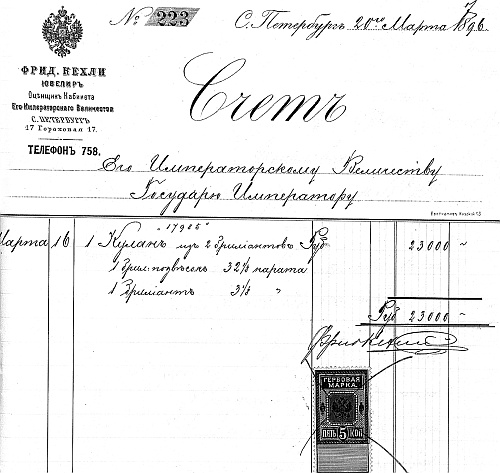 № 223
С. Петербургъ 20го Марта 1896
ФРИД. КЕХЛИ
ЮВЕЛИРЪ
Оцѣнщикъ Кабинета
Его Императорскаго Величества
С. ПЕТЕРБУРГЪ
17 Гороховая 17.
ТЕЛЕФОНЪ 758.
Счетъ
Его Императорскому Величеству
Государю Императору
"17905"
Марта 16 1 Куланъ изъ 2 брилiантовъ Руб 23000 "
1 брил: подвѣсокъ 32½ карата
1 Брилiантъ 3⅛ "
Руб 23000 "
ГЕРБОВАЯ
МАРКА.
ПЯТЬ 5 КОП.